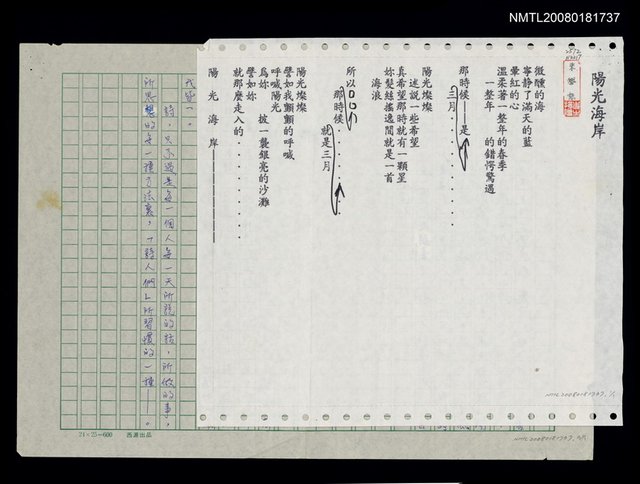 NMTL20080181737
陽光海岸
微醺的海
寧靜了滿天的藍
暈紅的心
溫柔著一整年的春季
一整年 的錯愕驚遇
那時候——是
三月
陽光燦燦
述說一些希望
真希望那時就有一顆星
妳髮絲搖逸間就是一首
海浪
所以
那時候
就是三月
陽光燦燦
譬如我顫顫的呼喊
呼喊陽光
為妳 披一襲銀亮的沙灘
譬如妳
就那麼走入的
陽光海岸
詩,只不過是每一個人每一天所說的話,所做的事,
所思想的每一種方法裏,「詩人們」所習慣的一種——。
24×25=600 西源出品
NMTL20080181737